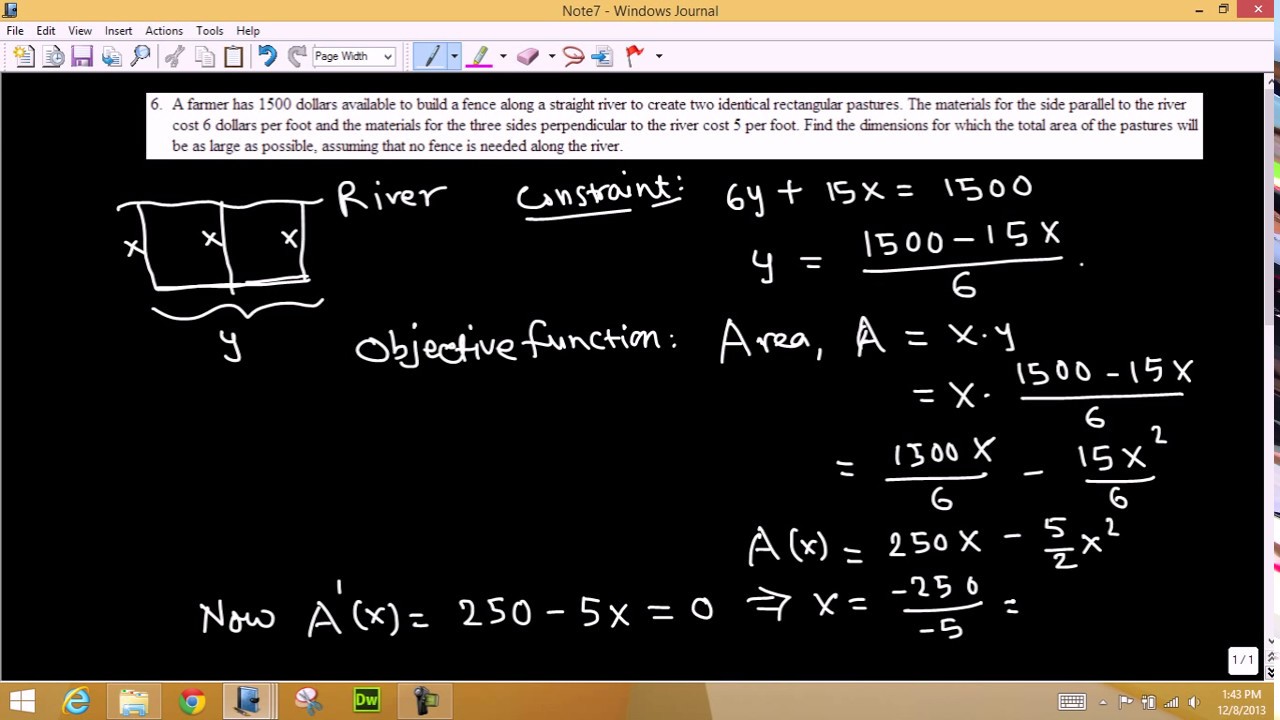 Note7 - Windows Journal
File Edit View Insert Actions Tools Help
Page Width
6. A farmer has 1500 dollars available to build a fence along a straight river to create two identical rectangular pastures. The materials for the side parallel to the river
cost 6 dollars per foot and the materials for the three sides perpendicular to the river cost 5 per foot. Find the dimensions for which the total area of the pastures will
be as large as possible, assuming that no fence is needed along the river.
River
x x x
y
Constraint: 6y + 15x = 1500
y = (1500 - 15x)/6 .
Objective function: Area, A = x·y
= x· (1500 - 15x)/6
= 1500x/6 - 15x²/6
A(x) = 250x - 5/2 x²
Now A'(x) = 250 - 5x = 0 ⇒ x = -250/-5 =
1 / 1
Dw
1:43 PM
12/8/2013